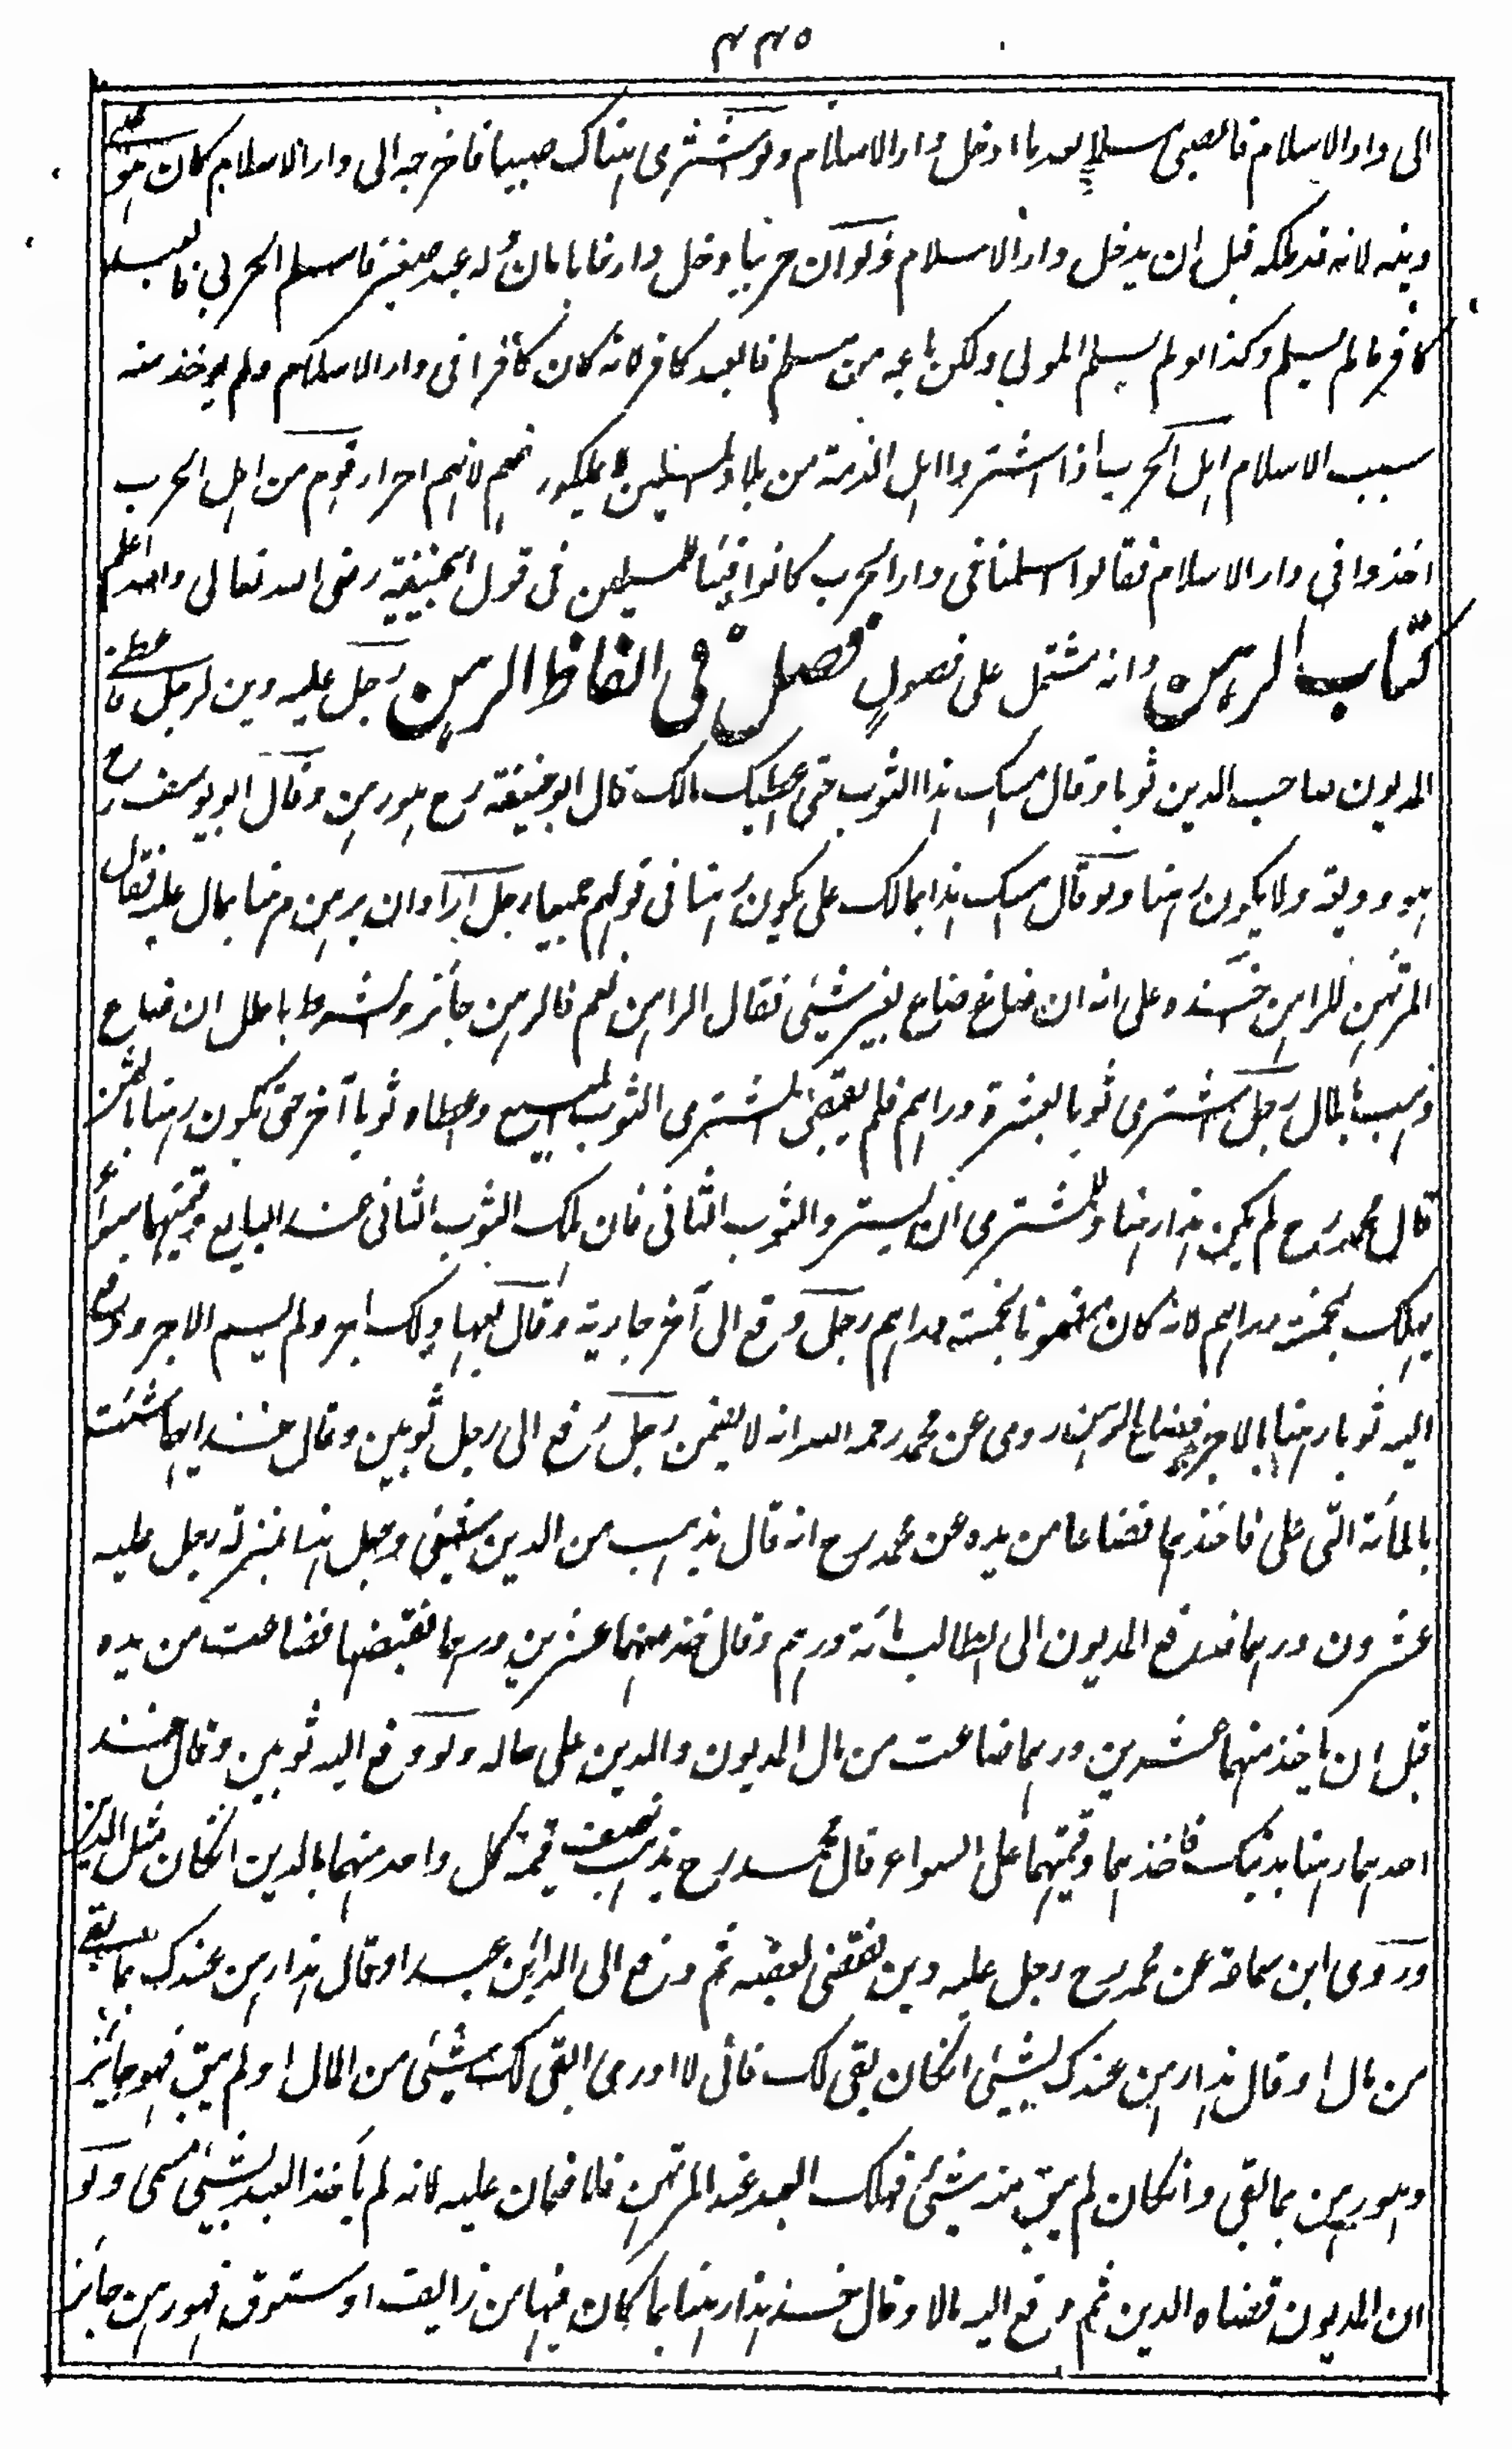 ٤٤٥
الى دار الاسلام فالصبى مسلم بعد ما ادخل دار الاسلام ولو اشترى هناك صبيا فاخرجه الى دار الاسلام كان هو على
دينه لانه قد ملكه قبل ان يدخل دار الاسلام ولو ان حربيا دخل دارنا بامان وله عبد صغير فاسلم الحربى فالعبد
كافر ما لم يسلم وكذا لو لم يسلم المولى ولكن باعه من مسلم فالعبد كافر لانه كان كافرا فى دار الاسلام ولم يوخذ منه
سبب الاسلام اهل الحرب اذا اشتروا اهل الذمة من بلاد المسلمين لا يملكونهم لانهم احرار قوم من اهل الحرب
اخذوا فى دار الاسلام فقالوا اسلمنا فى دار الحرب كانوا فيئا للمسلمين فى قول ابيحنيفة رضى الله تعالى والله اعلم
كتاب الرهن وانه مشتمل على فصول فصل فى الفاظ الرهن رجل عليه دين لرجل فاعطى
المديون صاحب الدين ثوبا وقال امسك هذا الثوب حتى اعطيك مالك قال ابو حنيفة رح هو رهن وقال ابو يوسف رح
هو وديعة ولا يكون رهنا ولو قال امسك هذا بمالك على يكون رهنا فى قولهم جميعا رجل اراد ان يرهن رهنا بمال عليه فقال
المرتهن للراهن خذه على انه ان ضاع ضاع بغير شيئى فقال الراهن نعم فالرهن جائز والشرط باطل ان ضاع
ذهب بالمال رجل اشترى ثوبا بعشرة دراهم فلم يقبض المشترى الثوب المبيع واعطاه ثوبا آخر حتى تكون رهنا بالثمن
قال محمد رح لم يكن هذا رهنا وللمشترى ان يسترد الثوب الثانى فان هلك الثوب الثانى عند البايع وقيمتهما سواء
يهلك بخمسة دراهم لانه كان مضمونا بخمسة دراهم رجل دفع الى آخر جارية وقال بعها ولك اجر ولم يسم الاجر ودفع
اليه ثوبا رهنا بالاجر فضاع الرهن روى عن محمد رحمه الله انه لا يضمن رجل دفع الى رجل ثوبين وقال خذ ايهما شئت
بالمأة التى على فاخذهما فضاعا من يده عن محمد رح انه قال يذهب من الدين شيئى وجعل هذا بمنزلة رجل عليه
عشرون درهما فدفع المديون الى الطالب مأة درهم وقال خذ منهما عشرين درهما فقبضها فضاعت من يده
قبل ان ياخذ منهما عشرين درهما ضاعت من مال المديون والدين على حاله ولو دفع اليه ثوبين وقال خذ
احدهما رهنا بدينك فاخذهما وقيمتهما على السواء قال محمد رح يذهب نصف قيمة كل واحد منهما بالدين انكان مثل الدين
وروى ابن سماعة عن محمد رح رجل عليه دين فقضى بعضه ثم دفع الى الدائن عبدا وقال هذا رهن عندك بما بقى
من مال او قال هذا رهن عندك بشيئى انكان بقى لك فانى لا ادرى ابقى لك شيئى من المال او لم يبق فهو جائز
وهو رهن بما بقى وانكان لم يبق منه شيئى فهلك العبد عند المرتهن فلا ضمان عليه لانه لم يأخذ العبد بشيئى مسمى ولو
ان المديون قضاه الدين ثم دفع اليه مالا وقال خذ هذا رهنا بما كان فيها من زايف او ستوق فهو رهن جائز